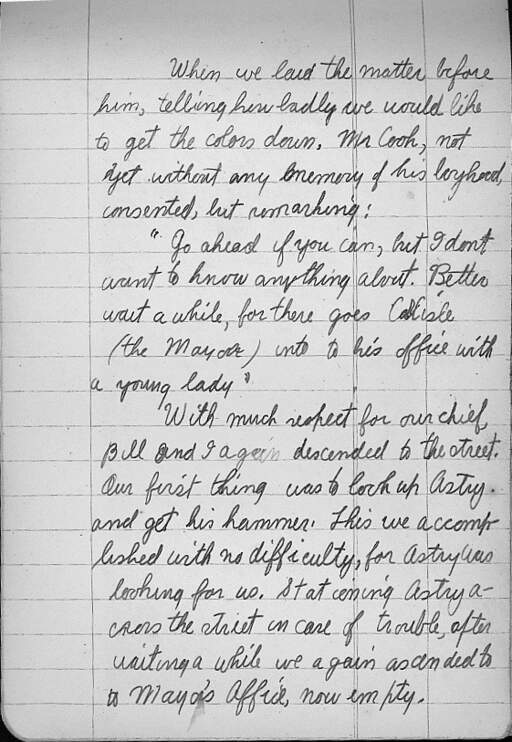 When we laid the matter before
him, telling how badly we would like
to get the colors down. Mr Cook, not
yet without any memory of his boyhood,
consented, but remarking:
" Go ahead if you can, but I dont
want to know anything about. Better
wait a while, for there goes Carlisle
(the Mayor) into to his office with
a young lady"
With much respect for our chief,
Bill and I again descended to the street.
Our first thing was to look up Astry
and get his hammer. This we accomp-
lished with no difficulty, for Astry was
looking for us. Stationing Astry a-
cross the street in case of trouble, after
waiting a while we again ascended to
to Mayor's Office, now empty.